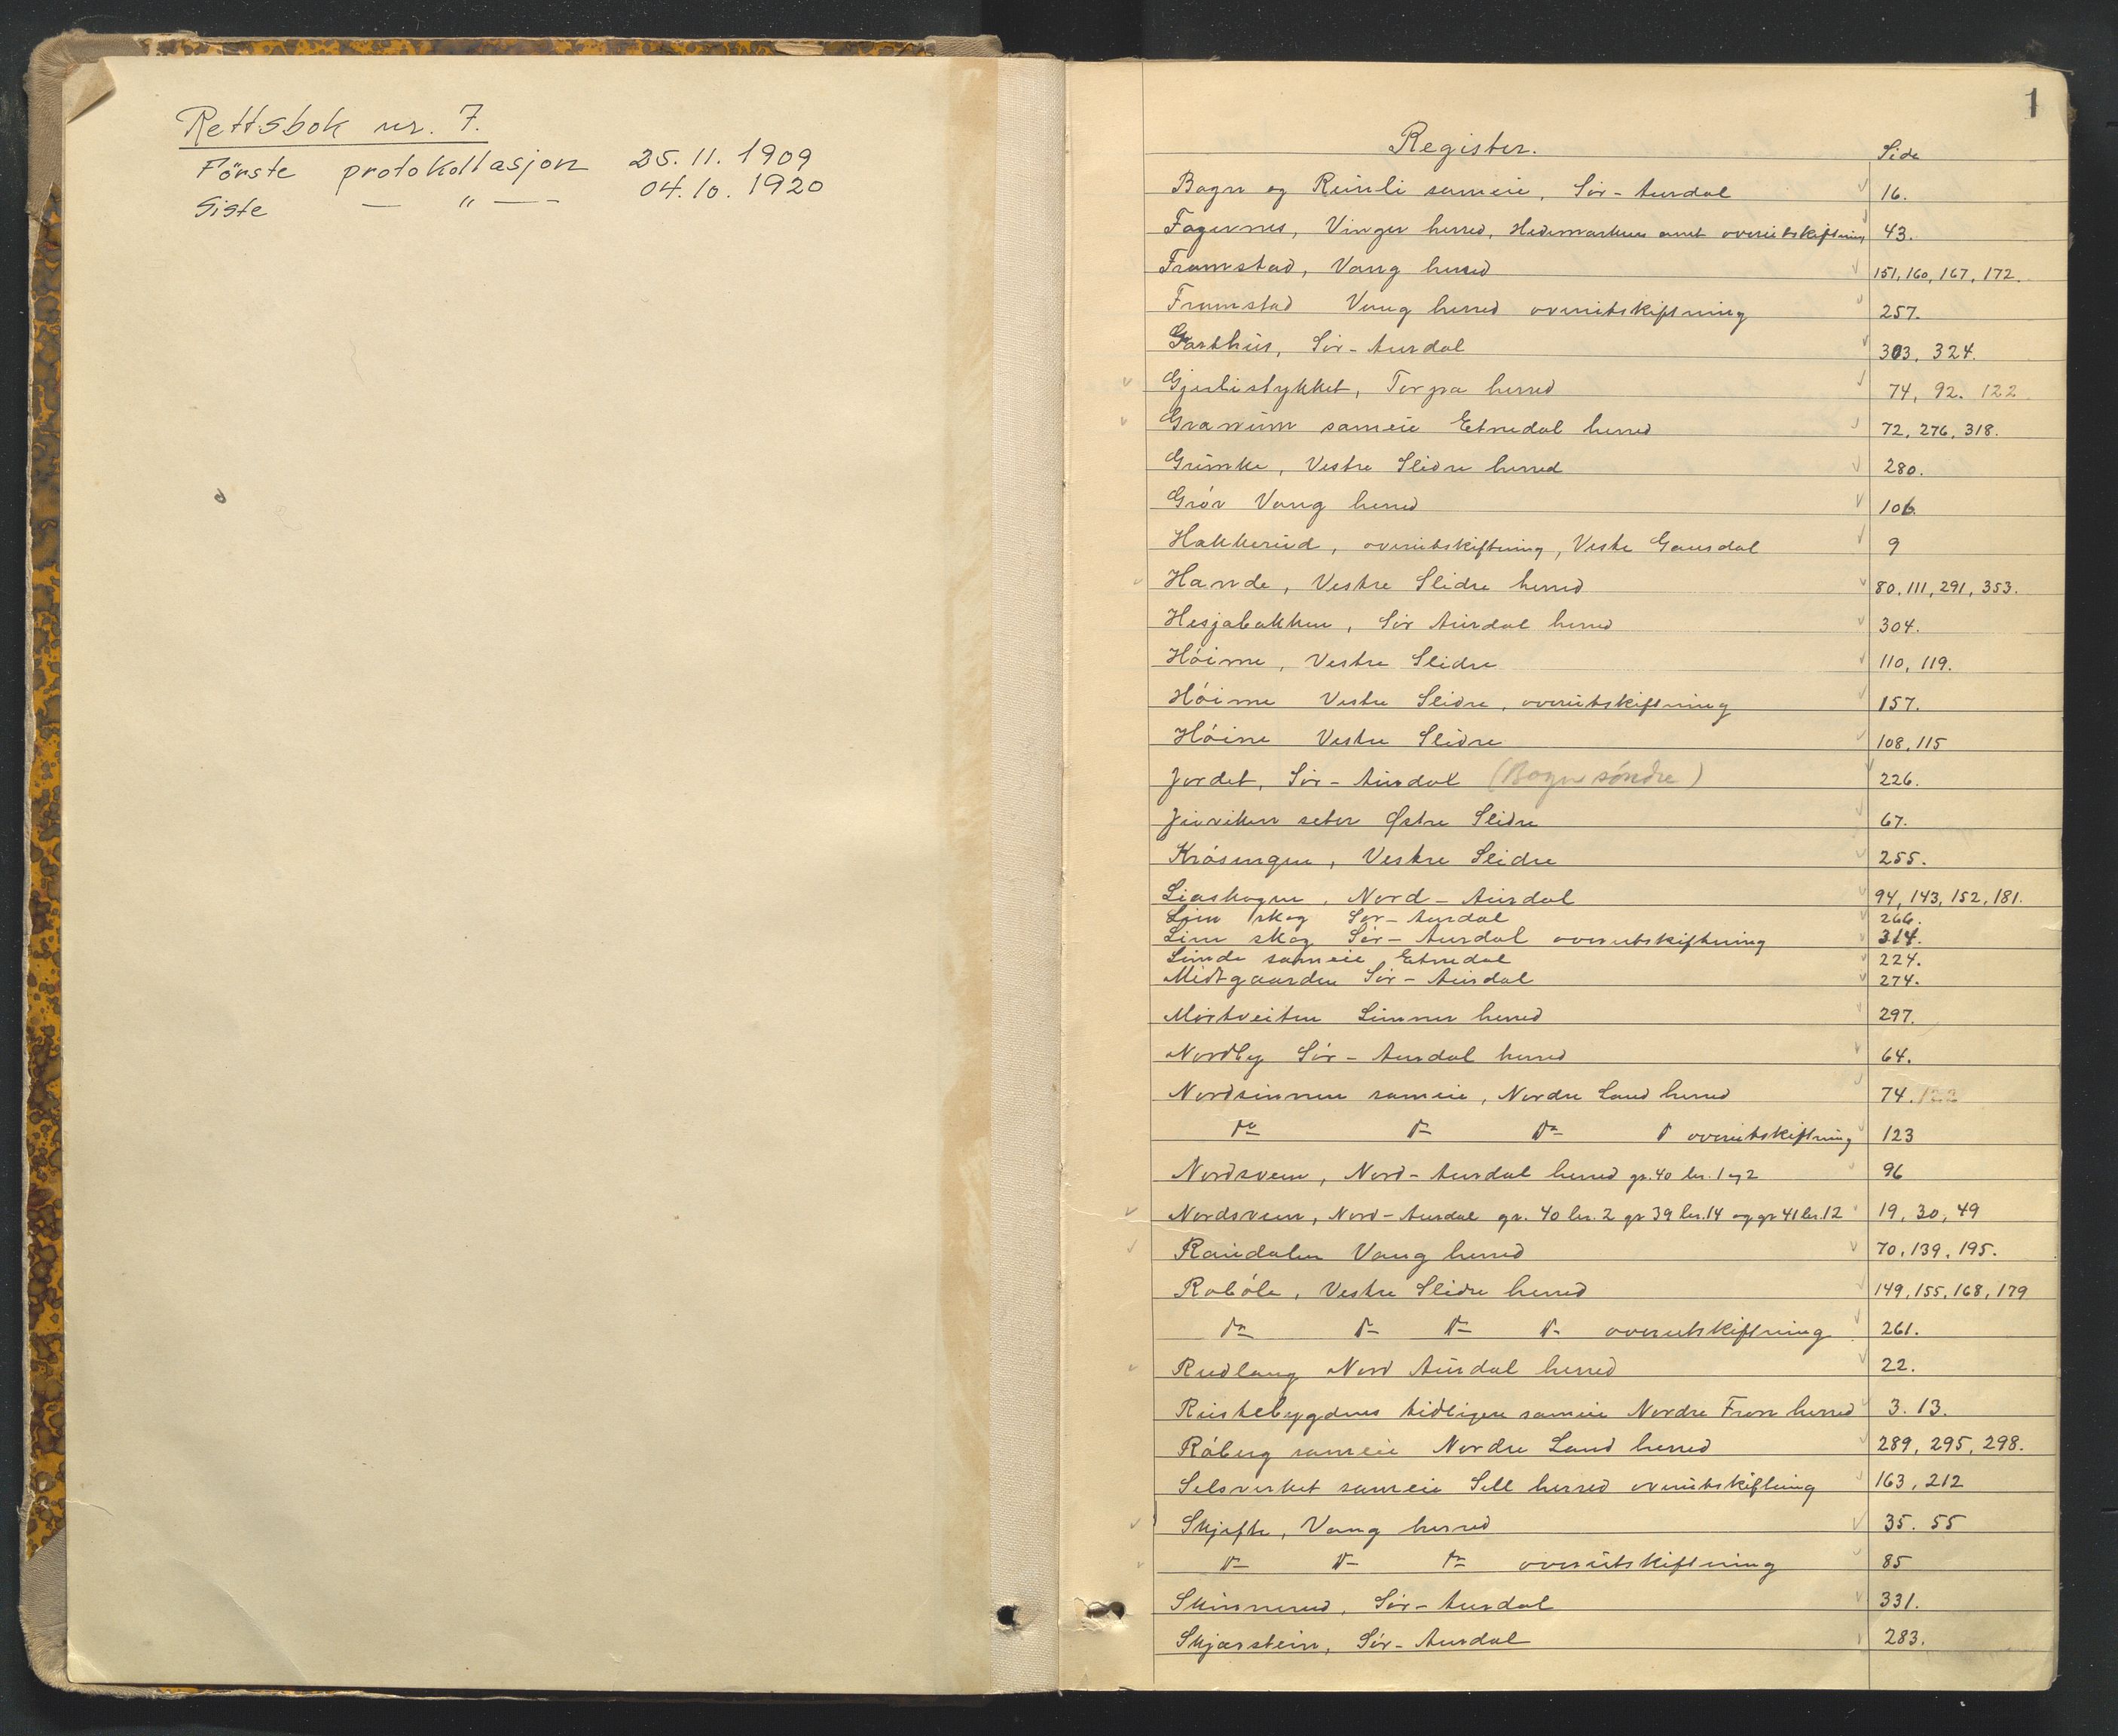 Rettsbok nr. 7.
Förste protokollasjon 25.11.1909
Siste — " — 04.10.1920
1
Register. Side
Bagn og Reinli sameie, Sør-Aurdal 16.
Fagernes, Vinger herred, Hedemarkens amt overutskiftning 43.
Framstad, Vang herred 151, 160, 167, 172.
Framstad Vang herred overutskiftning 257.
Garthus, Sør-Aurdal 303, 324.
Gjerlistykket, Torpa herred 74, 92. 122
Granum sameie Etnedal herred 72, 276, 318.
Grimke, Vestre Slidre herred 280.
Grøv Vang herred 106
Hakkerud, overutskiftning, Vestre Gausdal 9
Hande, Vestre Slidre herred 80, 111, 291, 353.
Hesjabakken, Sør Aurdal herred 304.
Høime, Vestre Slidre 110, 119.
Høime Vestre Slidre, overutskiftning 157.
Høine Vestre Slidre 108, 115
Jordet, Sør-Aurdal (Bagn søndre) 226.
seter Østre Slidre 67.
Krøsengen, Vestre Slidre 255.
Liaskogen, Nord-Aurdal 94, 143, 152, 181.
Lien skog Sør-Aurdal 266.
Lien skog Sør-Aurdal overutskiftning 314.
Lunde sameie Etnedal 224.
Midtgaarden Sør-Aurdal 274.
Mørtveiten Lunner herred 297.
Nordby Sør-Aurdal herred 64.
Nordsinnen sameie, Nordre Land herred 74. 122
do do do do overutskiftning 123
Nordsveen, Nord-Aurdal herred gr. 40 br. 1 og 2 96
Nordsveen, Nord-Aurdal gr. 40 br. 2 gr 39 br. 14 og gr 41 br. 12 19, 30, 49
Raudalen Vang herred 70, 139, 195.
Robøle, Vestre Slidre herred 149, 155, 168, 179
do do do do overutskiftning 261.
Rudlang Nord Aurdal herred 22.
Rustebygdens tidligere sameie Nordre Fron herred 3. 13.
Røberg sameie Nordre Land herred 289, 295, 298.
Selsverket sameie Sell herred overutskiftning 163, 212
Skjefte, Vang herred 35. 55
do do do overutskiftning 85
Skinnerud, Sør-Aurdal 331.
Skjærstein, Sør-Aurdal 283.